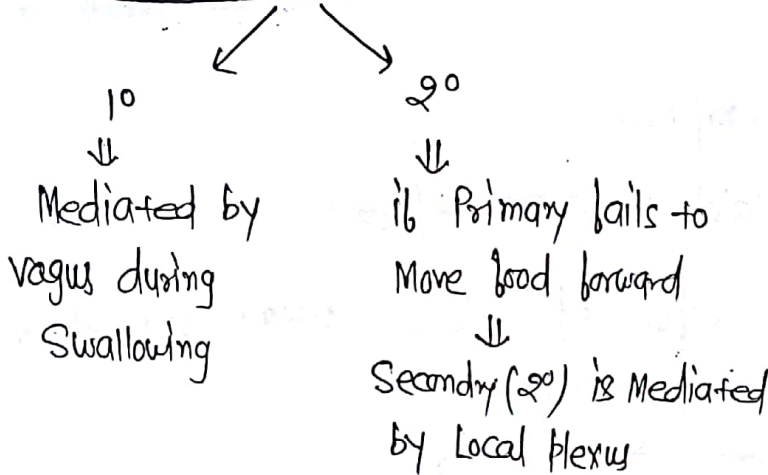 1°
⇓
Mediated by
vagus during
Swallowing
2°
⇓
if Primary fails to
Move food forward
⇓
Secondry (2°) is Mediated
by Local plexus